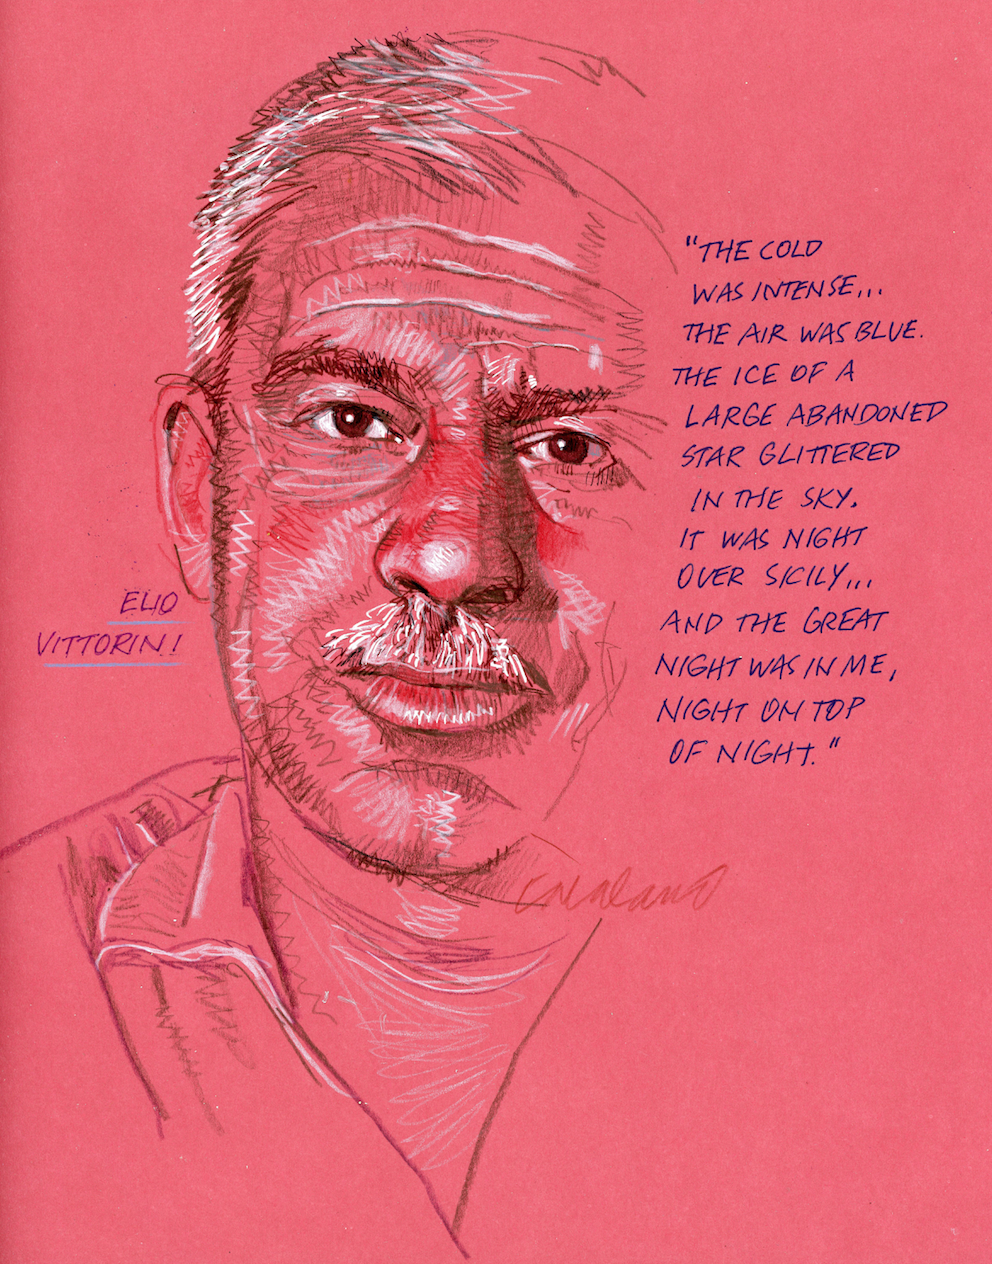 "THE COLD
WAS INTENSE...
THE AIR WAS BLUE.
THE ICE OF A
LARGE ABANDONED
STAR GLITTERED
IN THE SKY.
IT WAS NIGHT
OVER SICILY...
AND THE GREAT
NIGHT WAS IN ME,
NIGHT ON TOP
OF NIGHT."
ELIO
VITTORINI